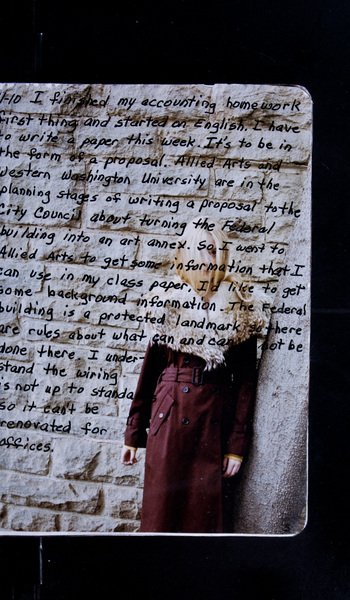 1-10 I finished my accounting homework
first thing and started on English. I have
to write a paper this week. It's to be in
the form of a proposal. Allied Arts and
Western Washington University are in the
planning stages of writing a proposal to the
City Council about turning the Federal
building into an art annex. So I went to
Allied Arts to get some information that I
can use in my class paper. I'd like to get
some background information. The Federal
building is a protected landmark so there
are rules about what can and can not be
done there. I under-
stand the wiring
is not up to standa
so it can't be
renovated for
offices.